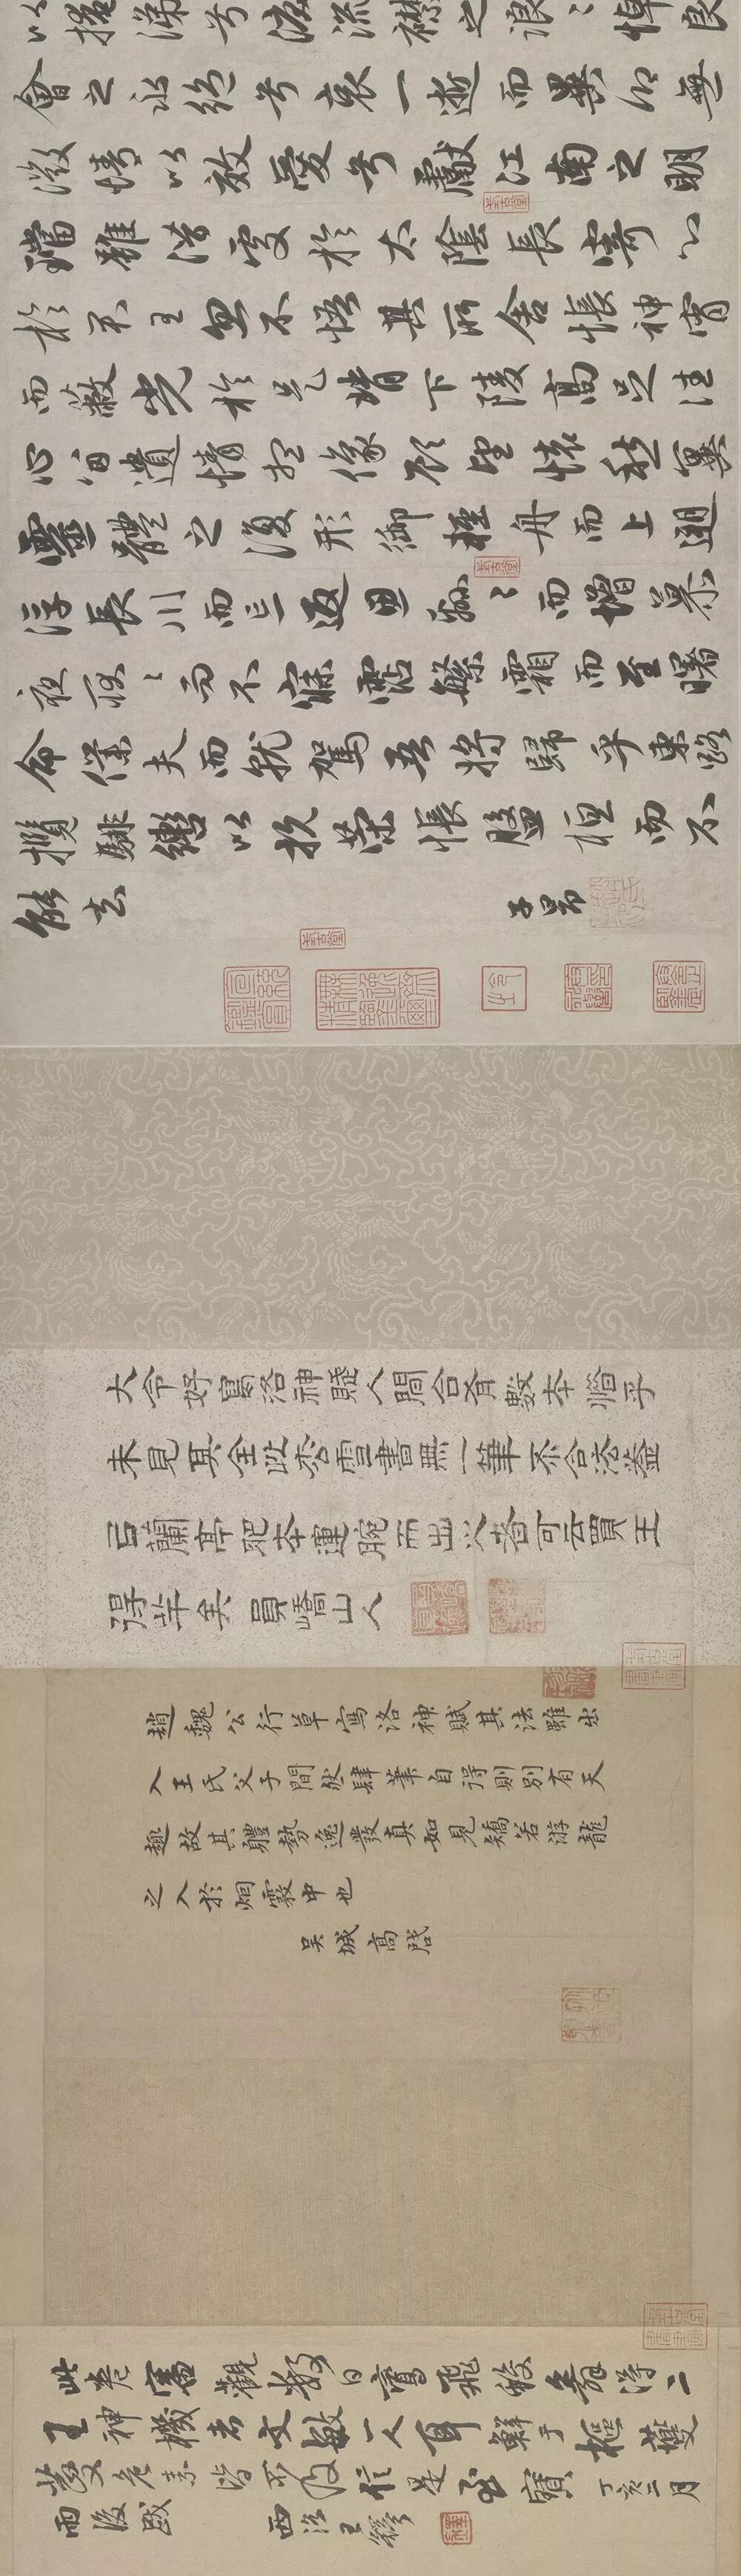 以掩涕兮淚流襟之浪〻悼良
會之永絕兮哀一逝而異鄉無
微情以效愛兮獻江南之明
璫雖潛處於太陰長寄心
於君王忽不悟其所舍悵神宵
而蔽光於是背下陵高足往
心留遺情想像顧望懷愁冀
靈體之復形御輕舟而上遡
浮長川而忘返思綿〻而增慕
夜耿〻而不寐霑繁霜而至曙
命僕夫而就駕吾將歸乎東路
攬騑轡以抗策悵盤桓而不
能去 子昂
三希堂精鑑璽
宜子孫
大令好寫洛神賦人間合有數本惜乎
未見其全此松雪書無一筆不合法蓋
以蘭亭肥本運腕而出之者可云買王
得羊矣 員嶠山人
趙魏公行草寫洛神賦其法雖出
入王氏父子間然肆筆自得則別有天
趣故其體勢逸發真如見矯若游龍
之入於烟霧中也
吳城高啓
此卷審觀數日鸞飛蛟舞得二
王神機者文敏一人耳鮮于樞夔
夔危素皆不及信是至寶 丁亥二月
雨後跋 西沼王穉